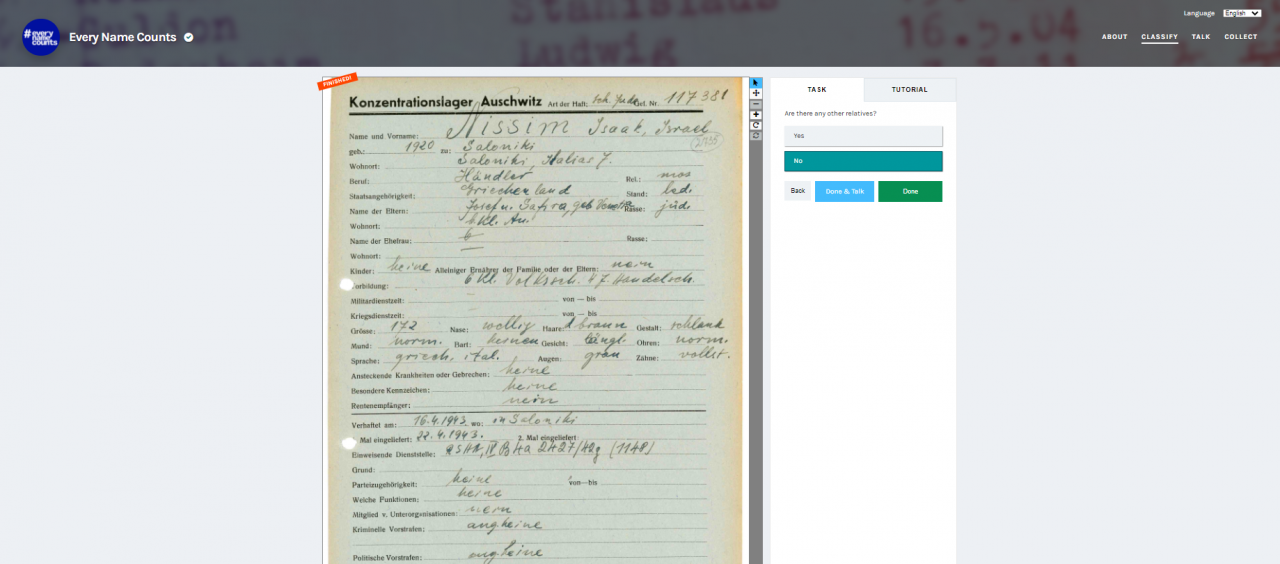 Language English
#every name counts
Every Name Counts
ABOUT CLASSIFY TALK COLLECT
Stanislaus
16.5.04
Ludwig
FINISHED!
TASK TUTORIAL
Are there any other relatives?
Yes
No
Back Done & Talk Done
Konzentrationslager Auschwitz Art der Haft: Sch. Jude Gef. Nr. 117381
Name und Vorname: Nissim Isaak, Israel
geb.: 1920 zu: Saloniki
Wohnort: Saloniki, Italias 7.
Beruf: Händler Rel.: mos
Staatsangehörigkeit: Griechenland Stand: led.
Name der Eltern: Josef u. Sahra, geb. Rasse: jüd.
Wohnort: b. Kl. Au.
Name der Ehefrau: Rasse:
Wohnort:
Kinder: keine Alleiniger Ernährer der Familie oder der Eltern: nein
Vorbildung: 6 Kl. Volkssch. 4 J. Handelsch.
Militärdienstzeit: von — bis
Kriegsdienstzeit: von — bis
Grösse: 172 Nase: wellig Haare: d braun Gestalt: schlank
Mund: norm. Bart: keinen Gesicht: längl. Ohren: norm.
Sprache: griech, ital. Augen: grau Zähne: vollst.
Ansteckende Krankheiten oder Gebrechen: keine
Besondere Kennzeichen: keine
Rentenempfänger: nein
Verhaftet am: 16.4.1943 wo: in Saloniki
Mal eingeliefert: 22.4.1943. 2. Mal eingeliefert:
Einweisende Dienststelle: RSHA, IV B 4a 2427/42g (1148)
Grund:
Parteizugehörigkeit: keine von—bis
Welche Funktionen: keine
Mitglied v. Unterorganisationen: nein
Kriminelle Vorstrafen: ang. keine
Politische Vorstrafen: ang. keine